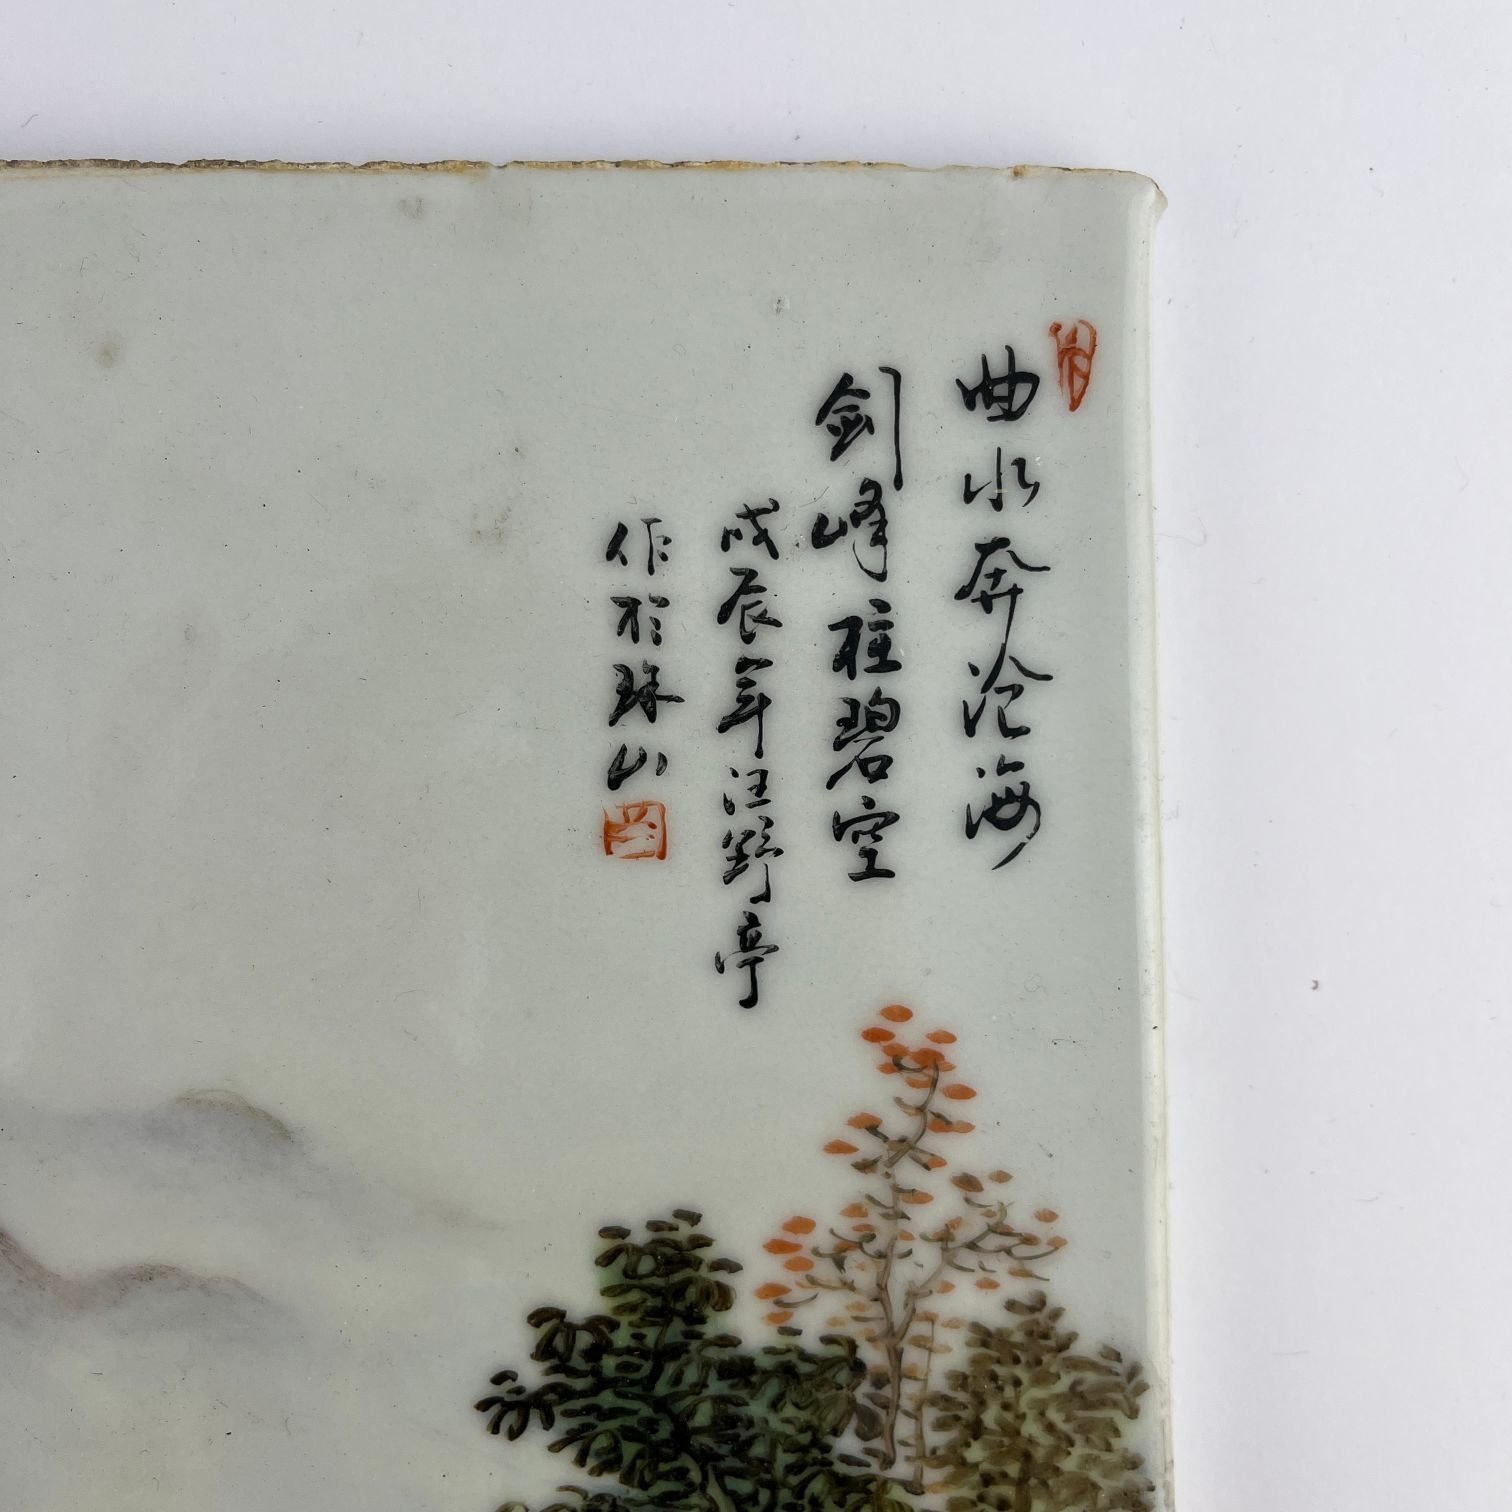 曲水奔沧海
剑峰柱碧空
戊辰年汪野亭
作於珠山